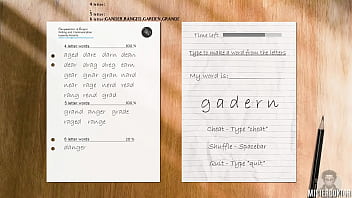 4 letter:
5 letter:
6 letter:GANDER,RANGED,GARDEN,GRANDE
4 letter words 100 %
aged dare darn dean
dear drag dreg earn
gear gnar gran nard
near rage rand read
rang rend grad
5 letter words 100 %
grand anger grade
raged range
6 letter words 20 %
danger
Time left:
Type to make a word from the letters
My word is:
g a d e r n
Cheat - Type "cheat"
Shuffle - Spacebar
Quit - Type "quit"
MISTERDOKTOR